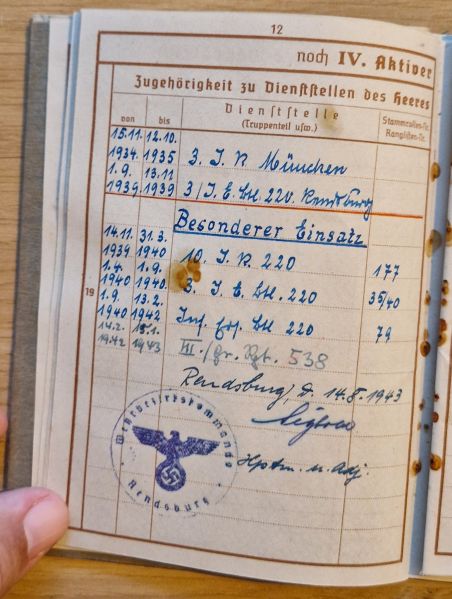 12
noch IV. Aktiver
Zugehörigkeit zu Dienststellen des Heeres
von bis Dienststelle (Truppenteil usw.) Stammrollen-Nr. Ranglisten-Nr.
15.11. 1934 12.10. 1935 3. I. R. München
1.9. 1939 13.11 1939 3/I. E. Btl. 220. Rendsburg
Besonderer Einsatz
14.11. 1939 31.3. 1940 10. I. R. 220 177
1.4. 1940 1.9. 1940 3. I. E. Btl. 220 35/40
19
1.9. 1940 13.2. 1942 Inf. Ers. Btl 220 79
14.2. 1942 15.1. 1943 III./Gr. Rgt. 538
Rendsburg, d. 14.8.1943
Hptm. u. Adj.
Wehrbezirkskommando
Rendsburg